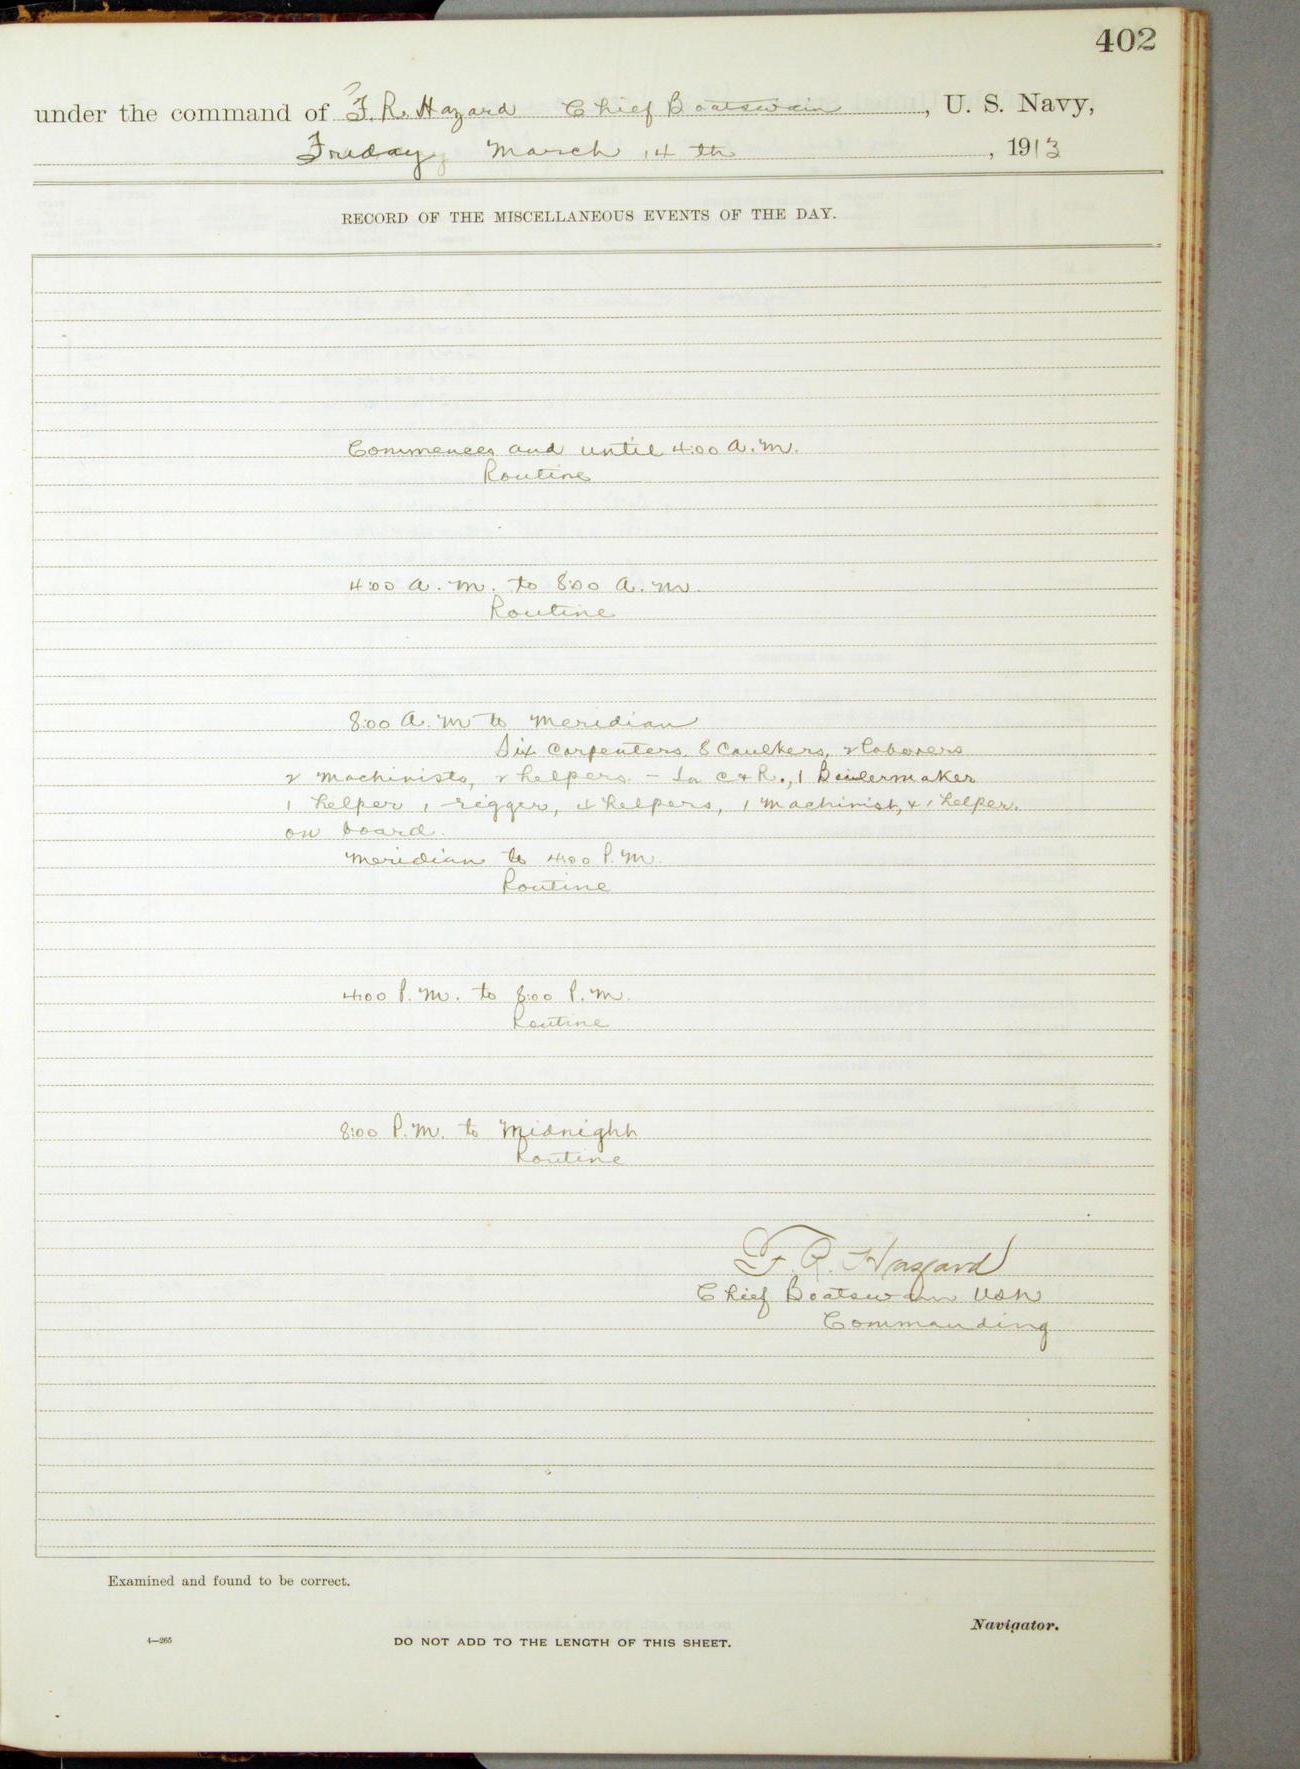 402
under the command of F. R. Hazard Chief Boatswain, U. S. Navy,
Friday March 14 th, 1913
RECORD OF THE MISCELLANEOUS EVENTS OF THE DAY.
Commences and until 4:00 A.M.
Routine
4:00 A.M. to 8:00 A.M.
Routine
8:00 A.M to Meridian
Six Carpenters, 8 Caulkers, 2 Laborers
2 Machinists, 2 helpers - C & R., 1 Boilermaker
1 helper, 1 rigger, 4 helpers, 1 Machinist, & 1 helper.
on board.
Meridian to 4:00 P.M.
Routine
4:00 P.M. to 8:00 P.M.
Routine
8:00 P.M. to Midnight
Routine
F. R. Hazard
Chief Boatswain USN
Commanding
Examined and found to be correct.
Navigator.
4—265
DO NOT ADD TO THE LENGTH OF THIS SHEET.